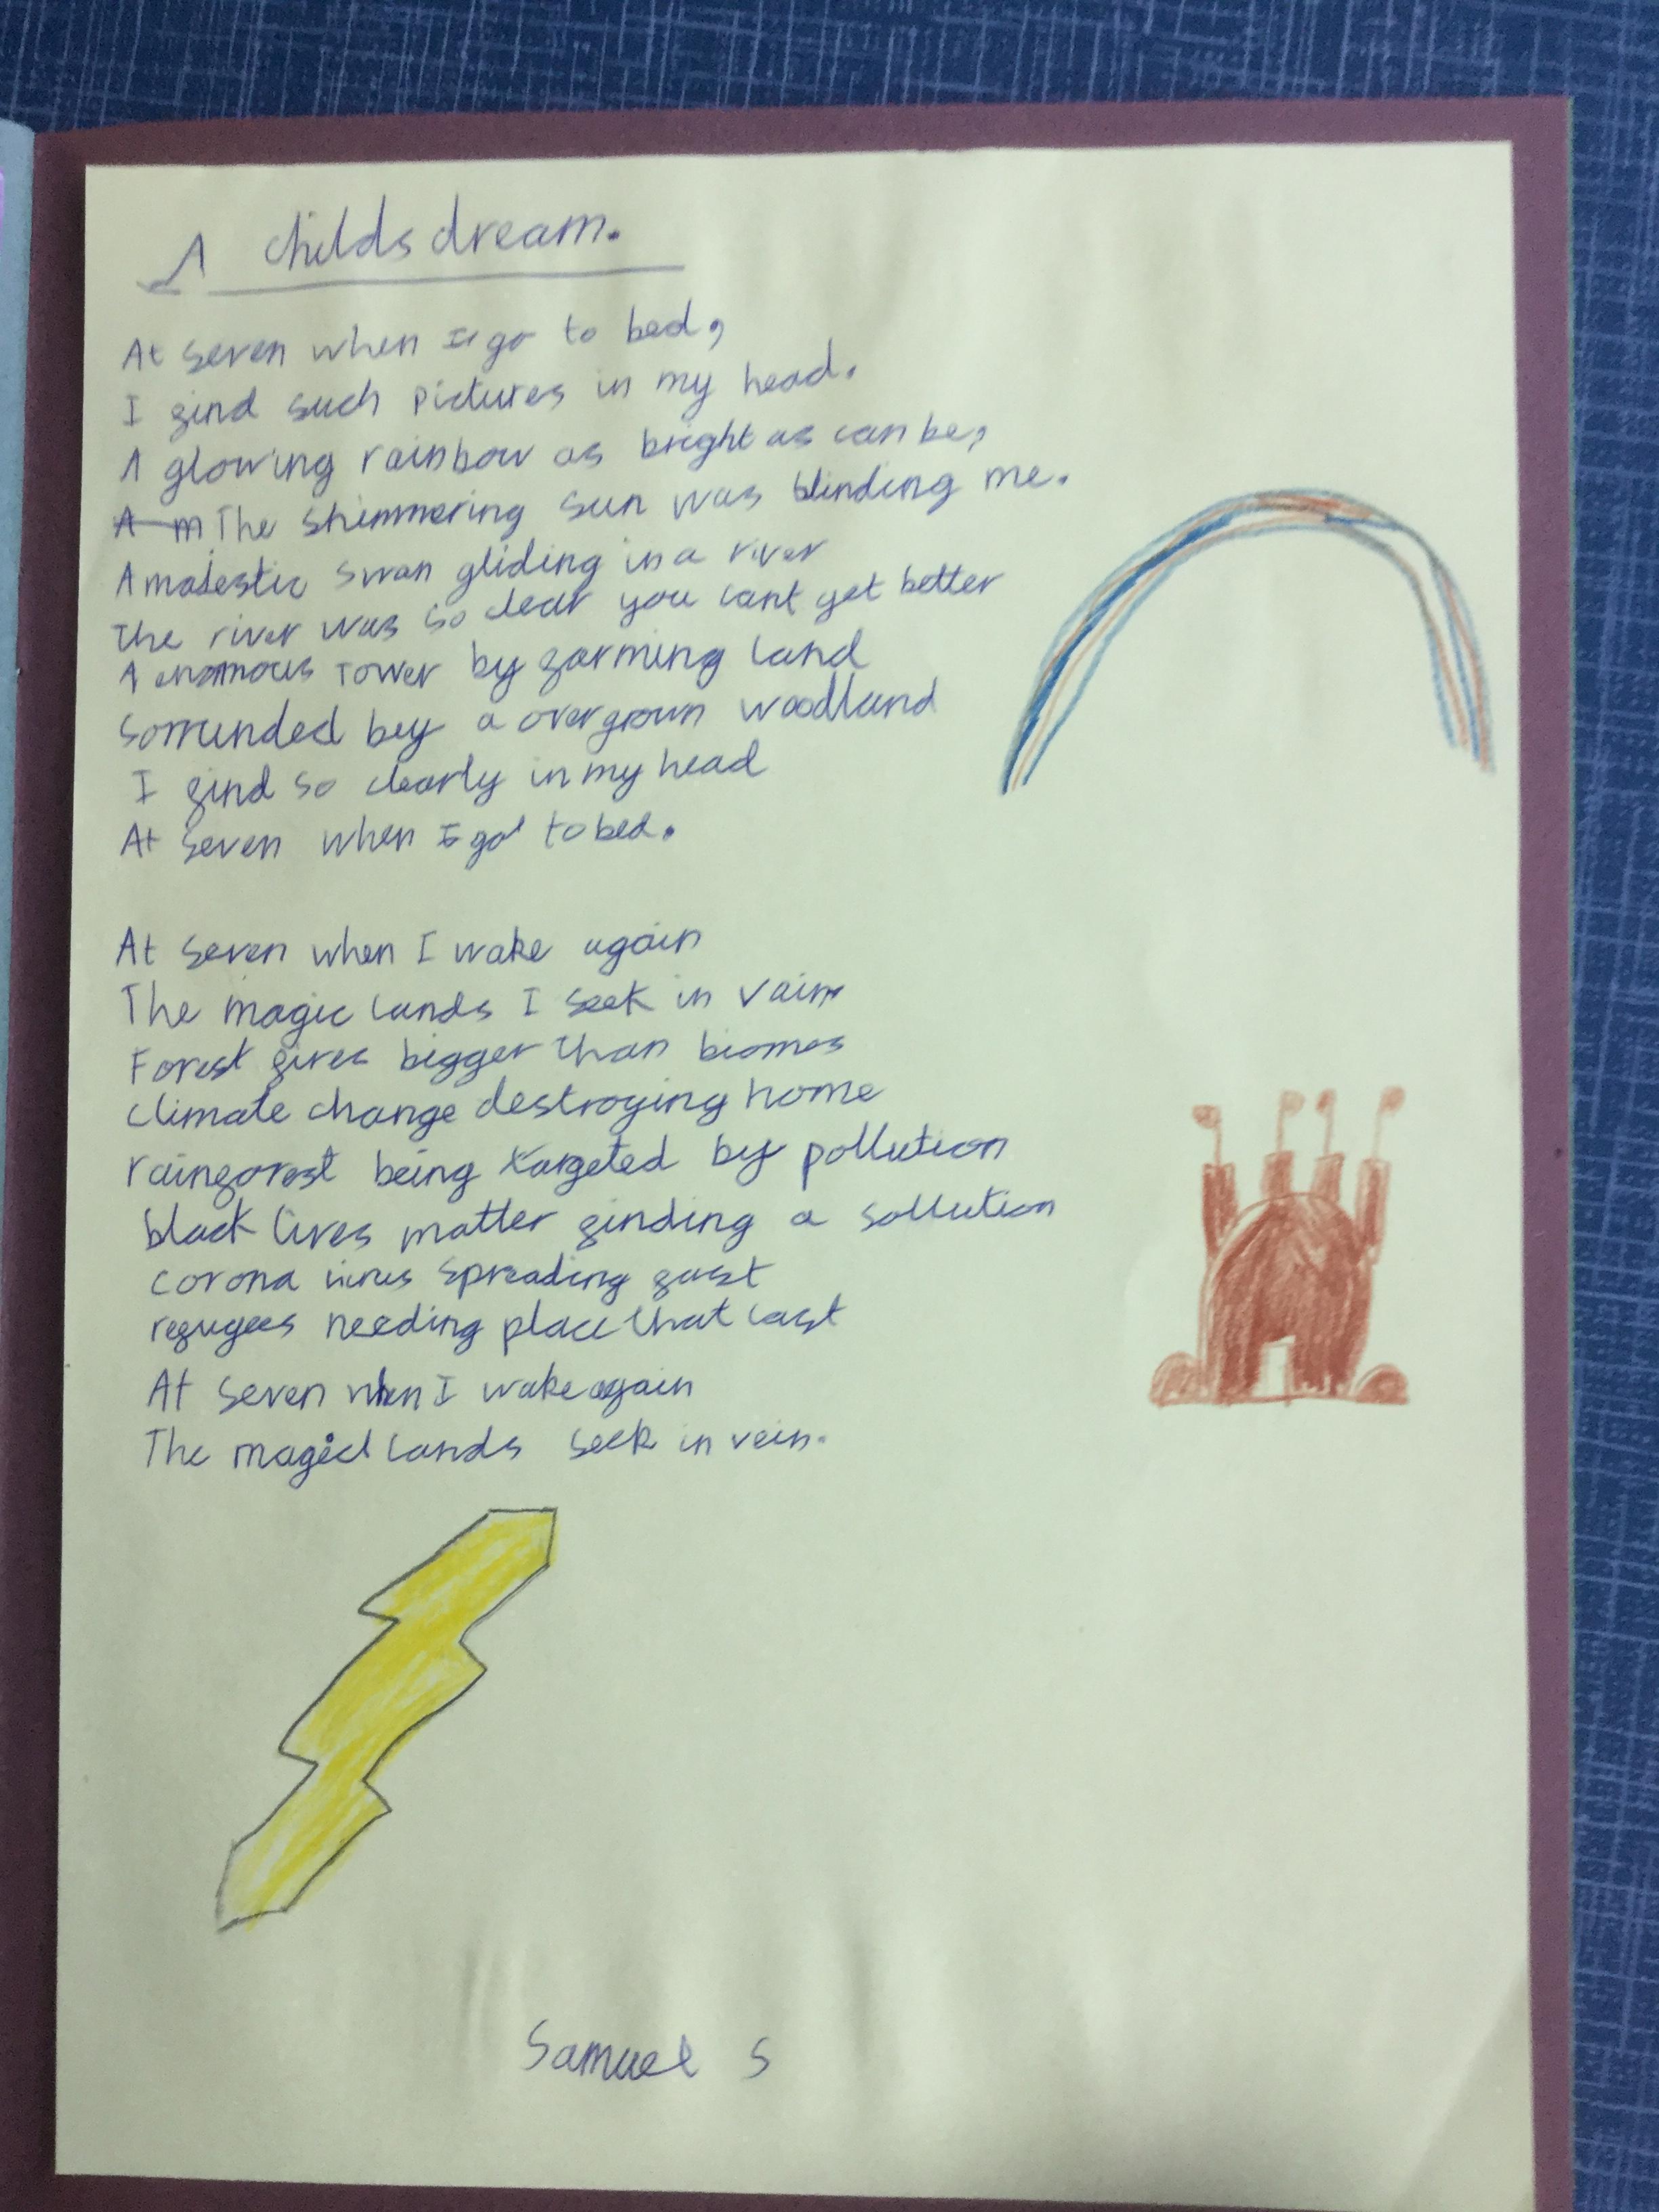 A childs dream.
At seven when I go to bed,
I find such pictures in my head.
A glowing rainbow as bright as can be,
A m The shimmering sun was blinding me.
A majestic swan gliding in a river
the river was so clear you cant get better
A enamous tower by farming land
Sorrunded bey a overgrown woodland
I find so clearly in my head
At seven when I go to bed.
At seven when I wake again
The magic lands I seek in vain
Forest fires bigger than biomes
climate change destroying home
rainforest being targeted by pollution
black lives matter finding a sollution
corona virus spreading fast
refugees needing place that last
At seven when I wake again
The magicl lands seek in vein.
Samuel S